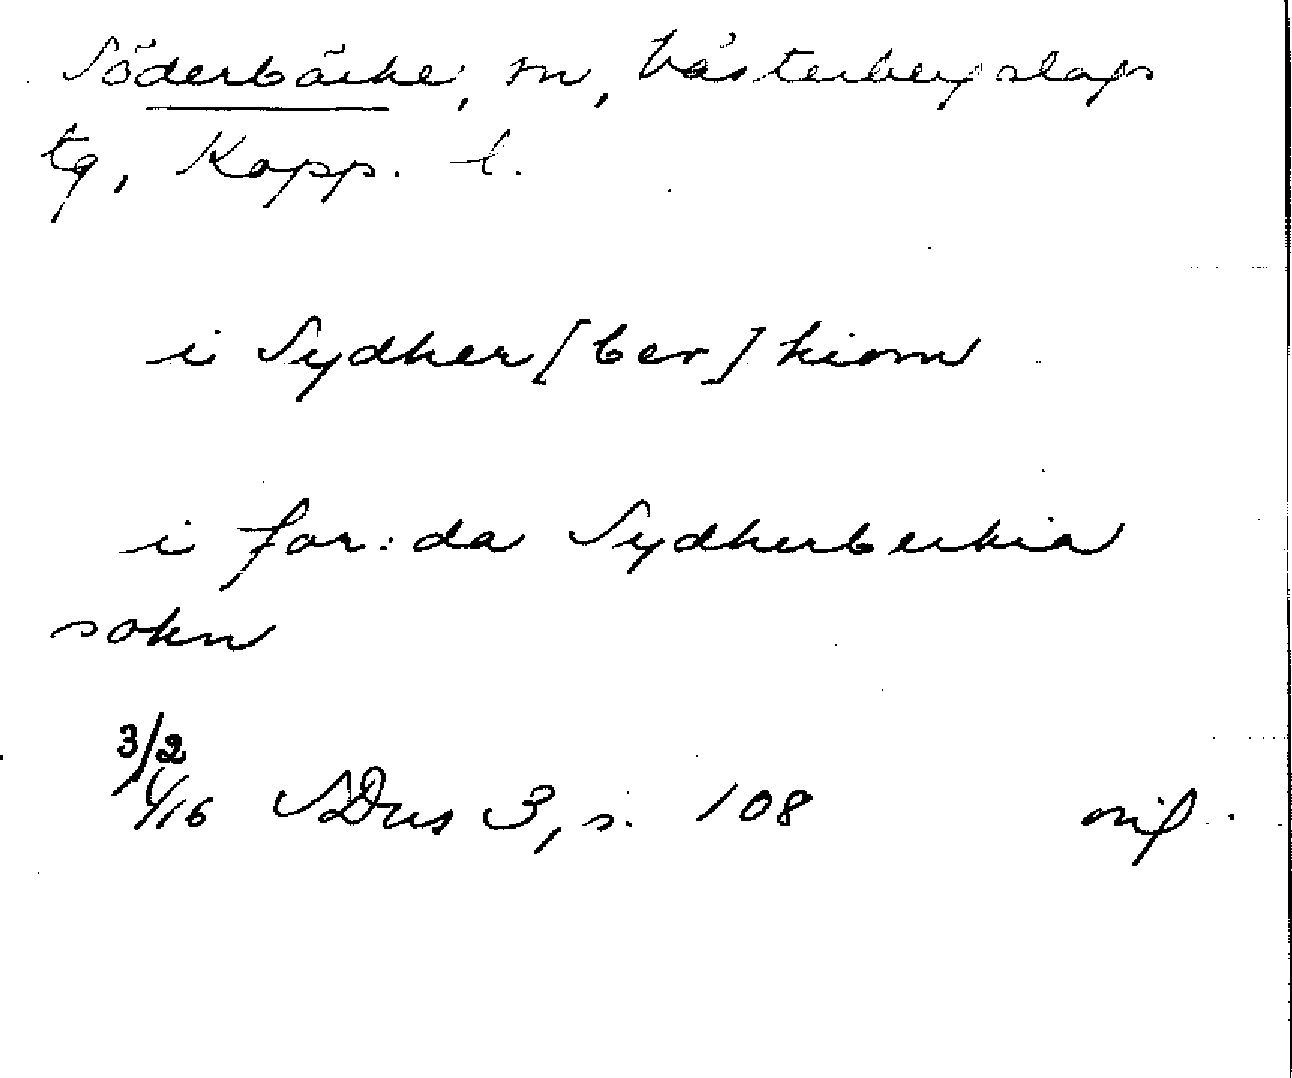 Söderbärke, sn, Västerbergslags
tg, Kopp. l.
i Sydher[ber]kiom
i for:da Sydherberkia
sokn
3/2
1416 SDns 3, s. 108